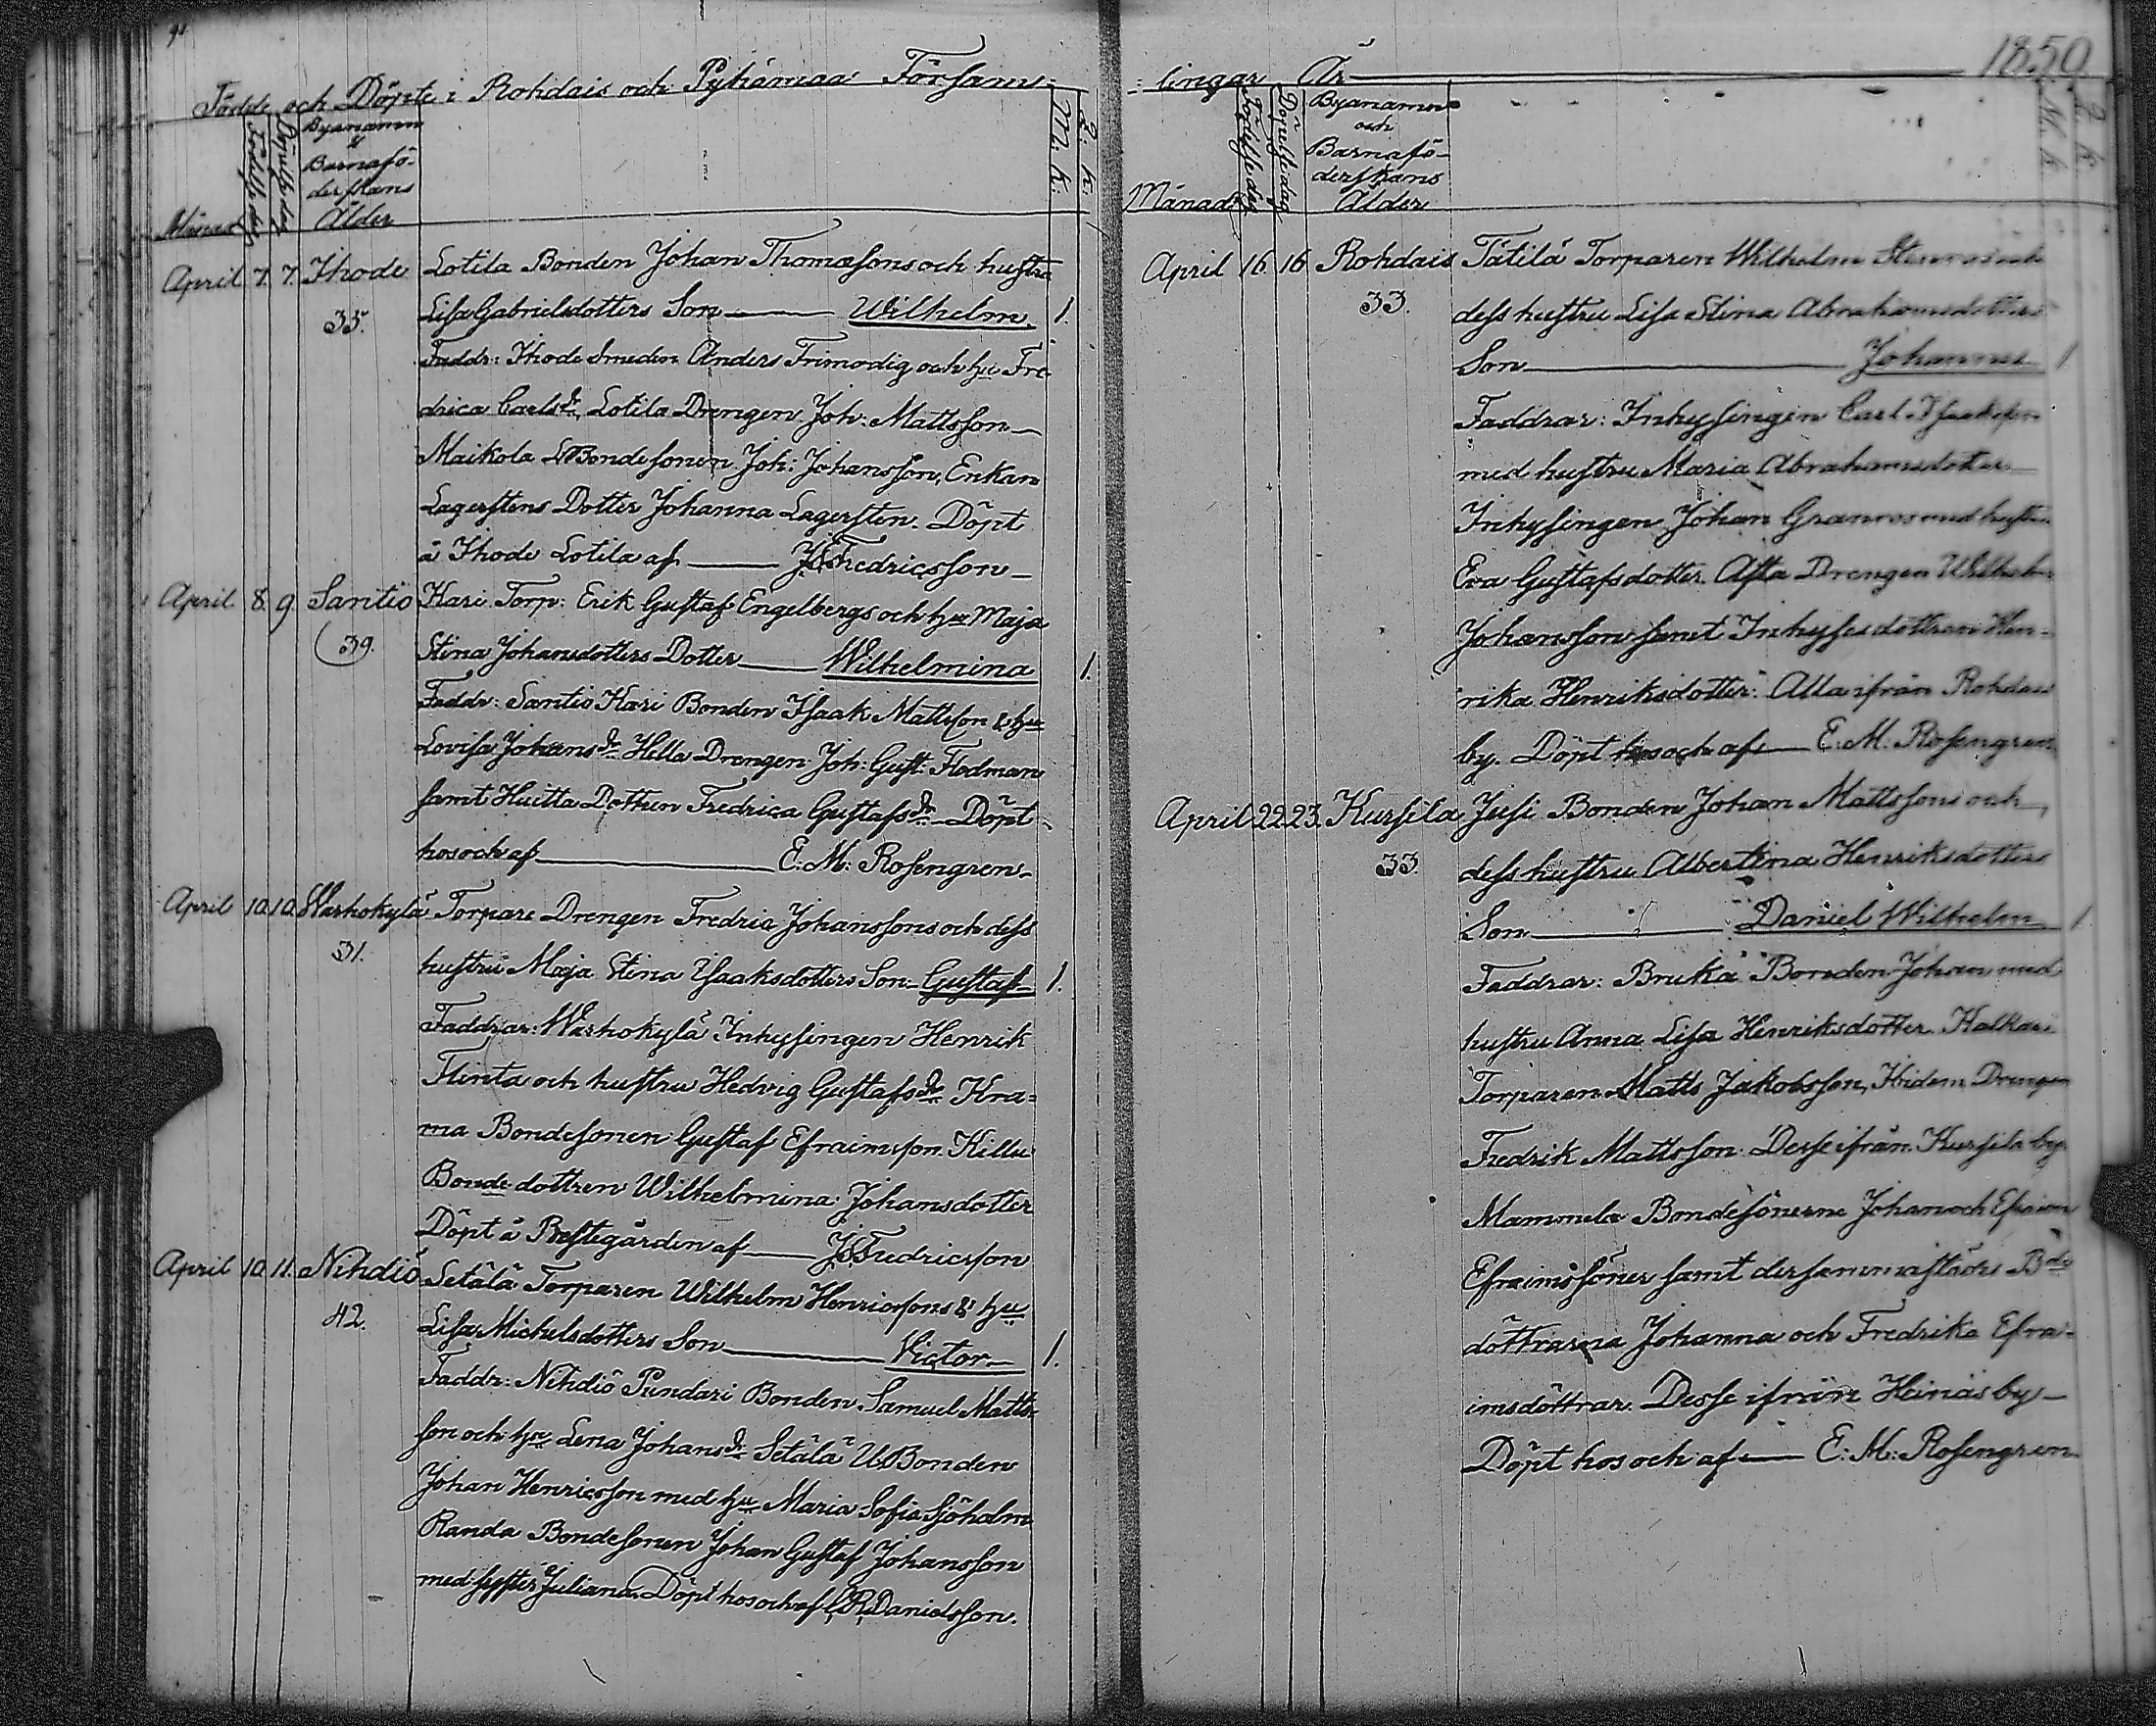 Födde och Döpte i Rohdais och Pyhämaa Församl-
Månad Födelse dag Döpelse dag Byanamn & Barnafö-
derskans
Ålder
M: k: Q: k:
April 7. 7. Ihode Lotila Bonden Johan Thomæsons och hustru
35. Lisa Gabrielsdotters Son — Wilhelm. 1.
Faddr: Ihode Smeden Anders Frimodig och hu Fre-
drica Carlsdr Lotila Drengen Joh: Mattsson —
Maikola Bondesonen Joh: Johansson, Enkan
Lagerstens Dotter Johanna Lagersten. Döpt
å Ihode Lotila af — Fredricsson —
April 8. 9. Santio Hari Torp: Erik Gustaf Engelbergs och hu Maja
39. Stina Johansdotters Dotter — Wilhelmina 1.
Faddr: Santio Hari Bonden Isaak Mattsson & hu
Lovisa Johansdr Hella Drengen Joh: Gust: Flodman
samt Huitta Dottren Fredrica Gustafsdr Döpt
hos och af — E: M: Rosengren —
April 10. 10. Warhokylä Torpare Drengen Fredric Johanssons och dess
31. hustru Maja Stina Isaaksdotters Son — Gustaf 1.
Faddrar: Warhokylä Inhysingen Henrik
Flinta och hustru Hedvig Gustafsdr Kra-
ma Bondesonen Gustaf Efraimsson Killu
Bonde dottren Wilhelmina Johansdotter
Döpt å Prestegården af — Fredricsson
April 10. 11. Nihdiö Setälä Torparen Wilhelm Henricsons & hu
42. Lisa Michelsdotters Son — Victor — 1.
Faddr: Nihdiö Pundari Bonden Samuel Matts-
son och hu Lena Johansdr Setälä U Bonden
Johan Henricsson med hu Maria Sofia Sjöholm
Randa Bondesonen Johan Gustaf Johansson
med syster Juliana. Döpt hos och af Danielsson.
: lingar År — 1850
Månad Födelse dag Döpelse dag Byanamn
och
Barnafö-
derskans
Ålder
M. k. Q. k.
April 16 16 Rohdais Tätilä Torparen Wilhelm Stenros och
33. dess hustru Lisa Stina Abrahamsdotters
Son — Johannes 1
Faddrar: Inhysingen Carl Isaaksson
med hustru Maria Abrahamsdotter —
Inhysingen Johan Granros med hustru
Eva Gustafsdotter. Asta Drengen Wilhelm
Johansson samt Inhyses dottren Hen-
rika Henriksdotter: Alla ifrån Rohdais
by. Döpt hos och af — E: M: Rosengren
April 22. 23. Kursila Jusi Bonden Johan Mattssons och
33. dess hustru Albertina Henriksdotters
Son — Daniel Wilhelm 1
Faddrar: Bruka Bonden Johan med
hustru Anna Lisa Henriksdotter. Kalkari
Torparen Matts Jakobsson, Ibidem Drengen
Fredrik Mattsson. Desse ifrån Kursila by
Mammela Bondesönerne Johan och Efraim
Efraimssöner samt dersammastädes Bde
döttrarna Johanna och Fredrika Efra-
imsdöttrar. Desse ifrån Heinäs by —
Döpt hos och af — E: M: Rosengren